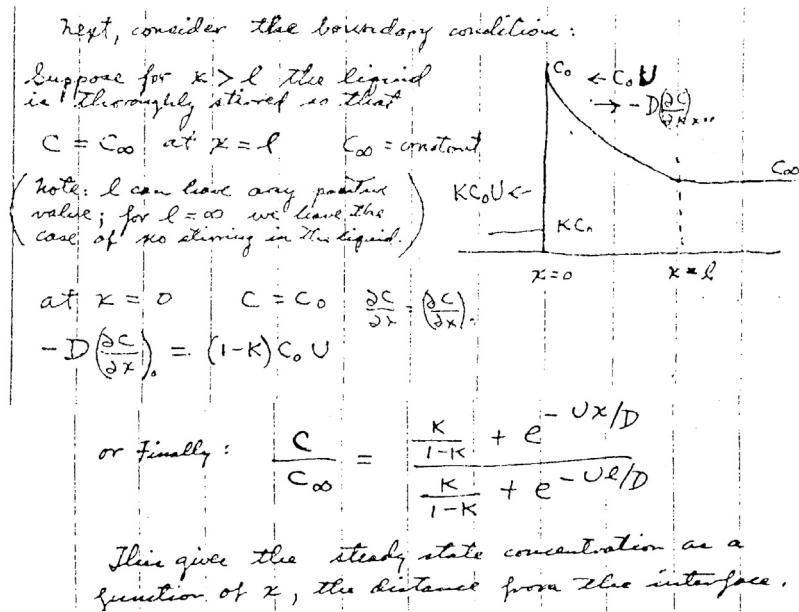 Next, consider the boundary conditions:
Suppose for x > l the liquid
is thoroughly stirred so that
C = C∞ at x = l C∞ = constant
(Note: l can have any positive
value; for l = ∞ we have the
case of no stirring in the liquid.)
C₀ ← C₀U
→ -D(∂C/∂x)ₓ₌₀
C∞
KC₀U ←
KC₀
x = 0 x = l
at x = 0 C = C₀ ∂C/∂x = (∂C/∂x)₀
-D(∂C/∂x)₀ = (1-K) C₀ U
or Finally: C/C∞ = (K/(1-K) + e^(-Ux/D)) / (K/(1-K) + e^(-Ul/D))
This gives the steady state concentration as a
function of x, the distance from the interface.